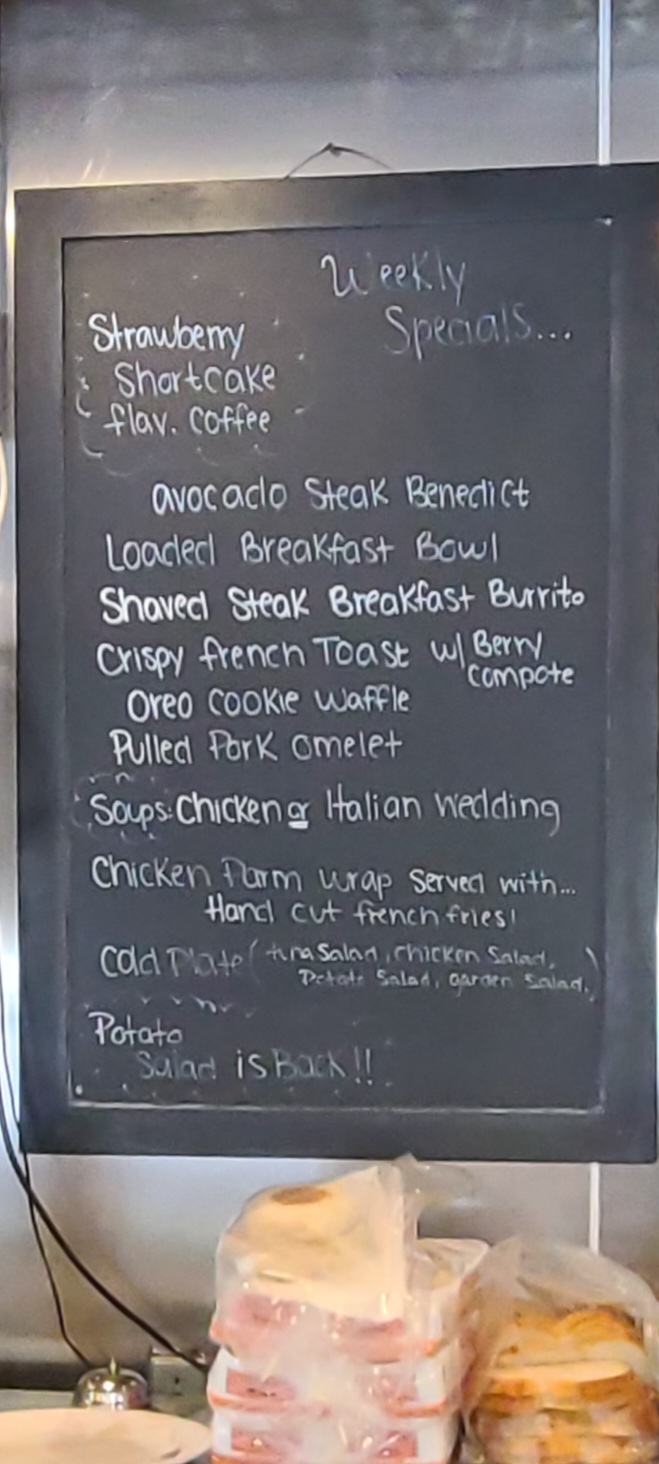 Weekly
Specials...
Strawberry
Shortcake
flav. coffee
avocado Steak Benedict
Loaded Breakfast Bowl
Shaved Steak Breakfast Burrito
Crispy french Toast w/ Berry
compote
Oreo cookie waffle
Pulled Pork omelet
Soups: Chicken or Italian wedding
Chicken Parm wrap served with...
Hand cut french fries!
Cold Plate (tuna Salad, chicken Salad,
Potato Salad, garden Salad,)
Potato
Salad is Back!!